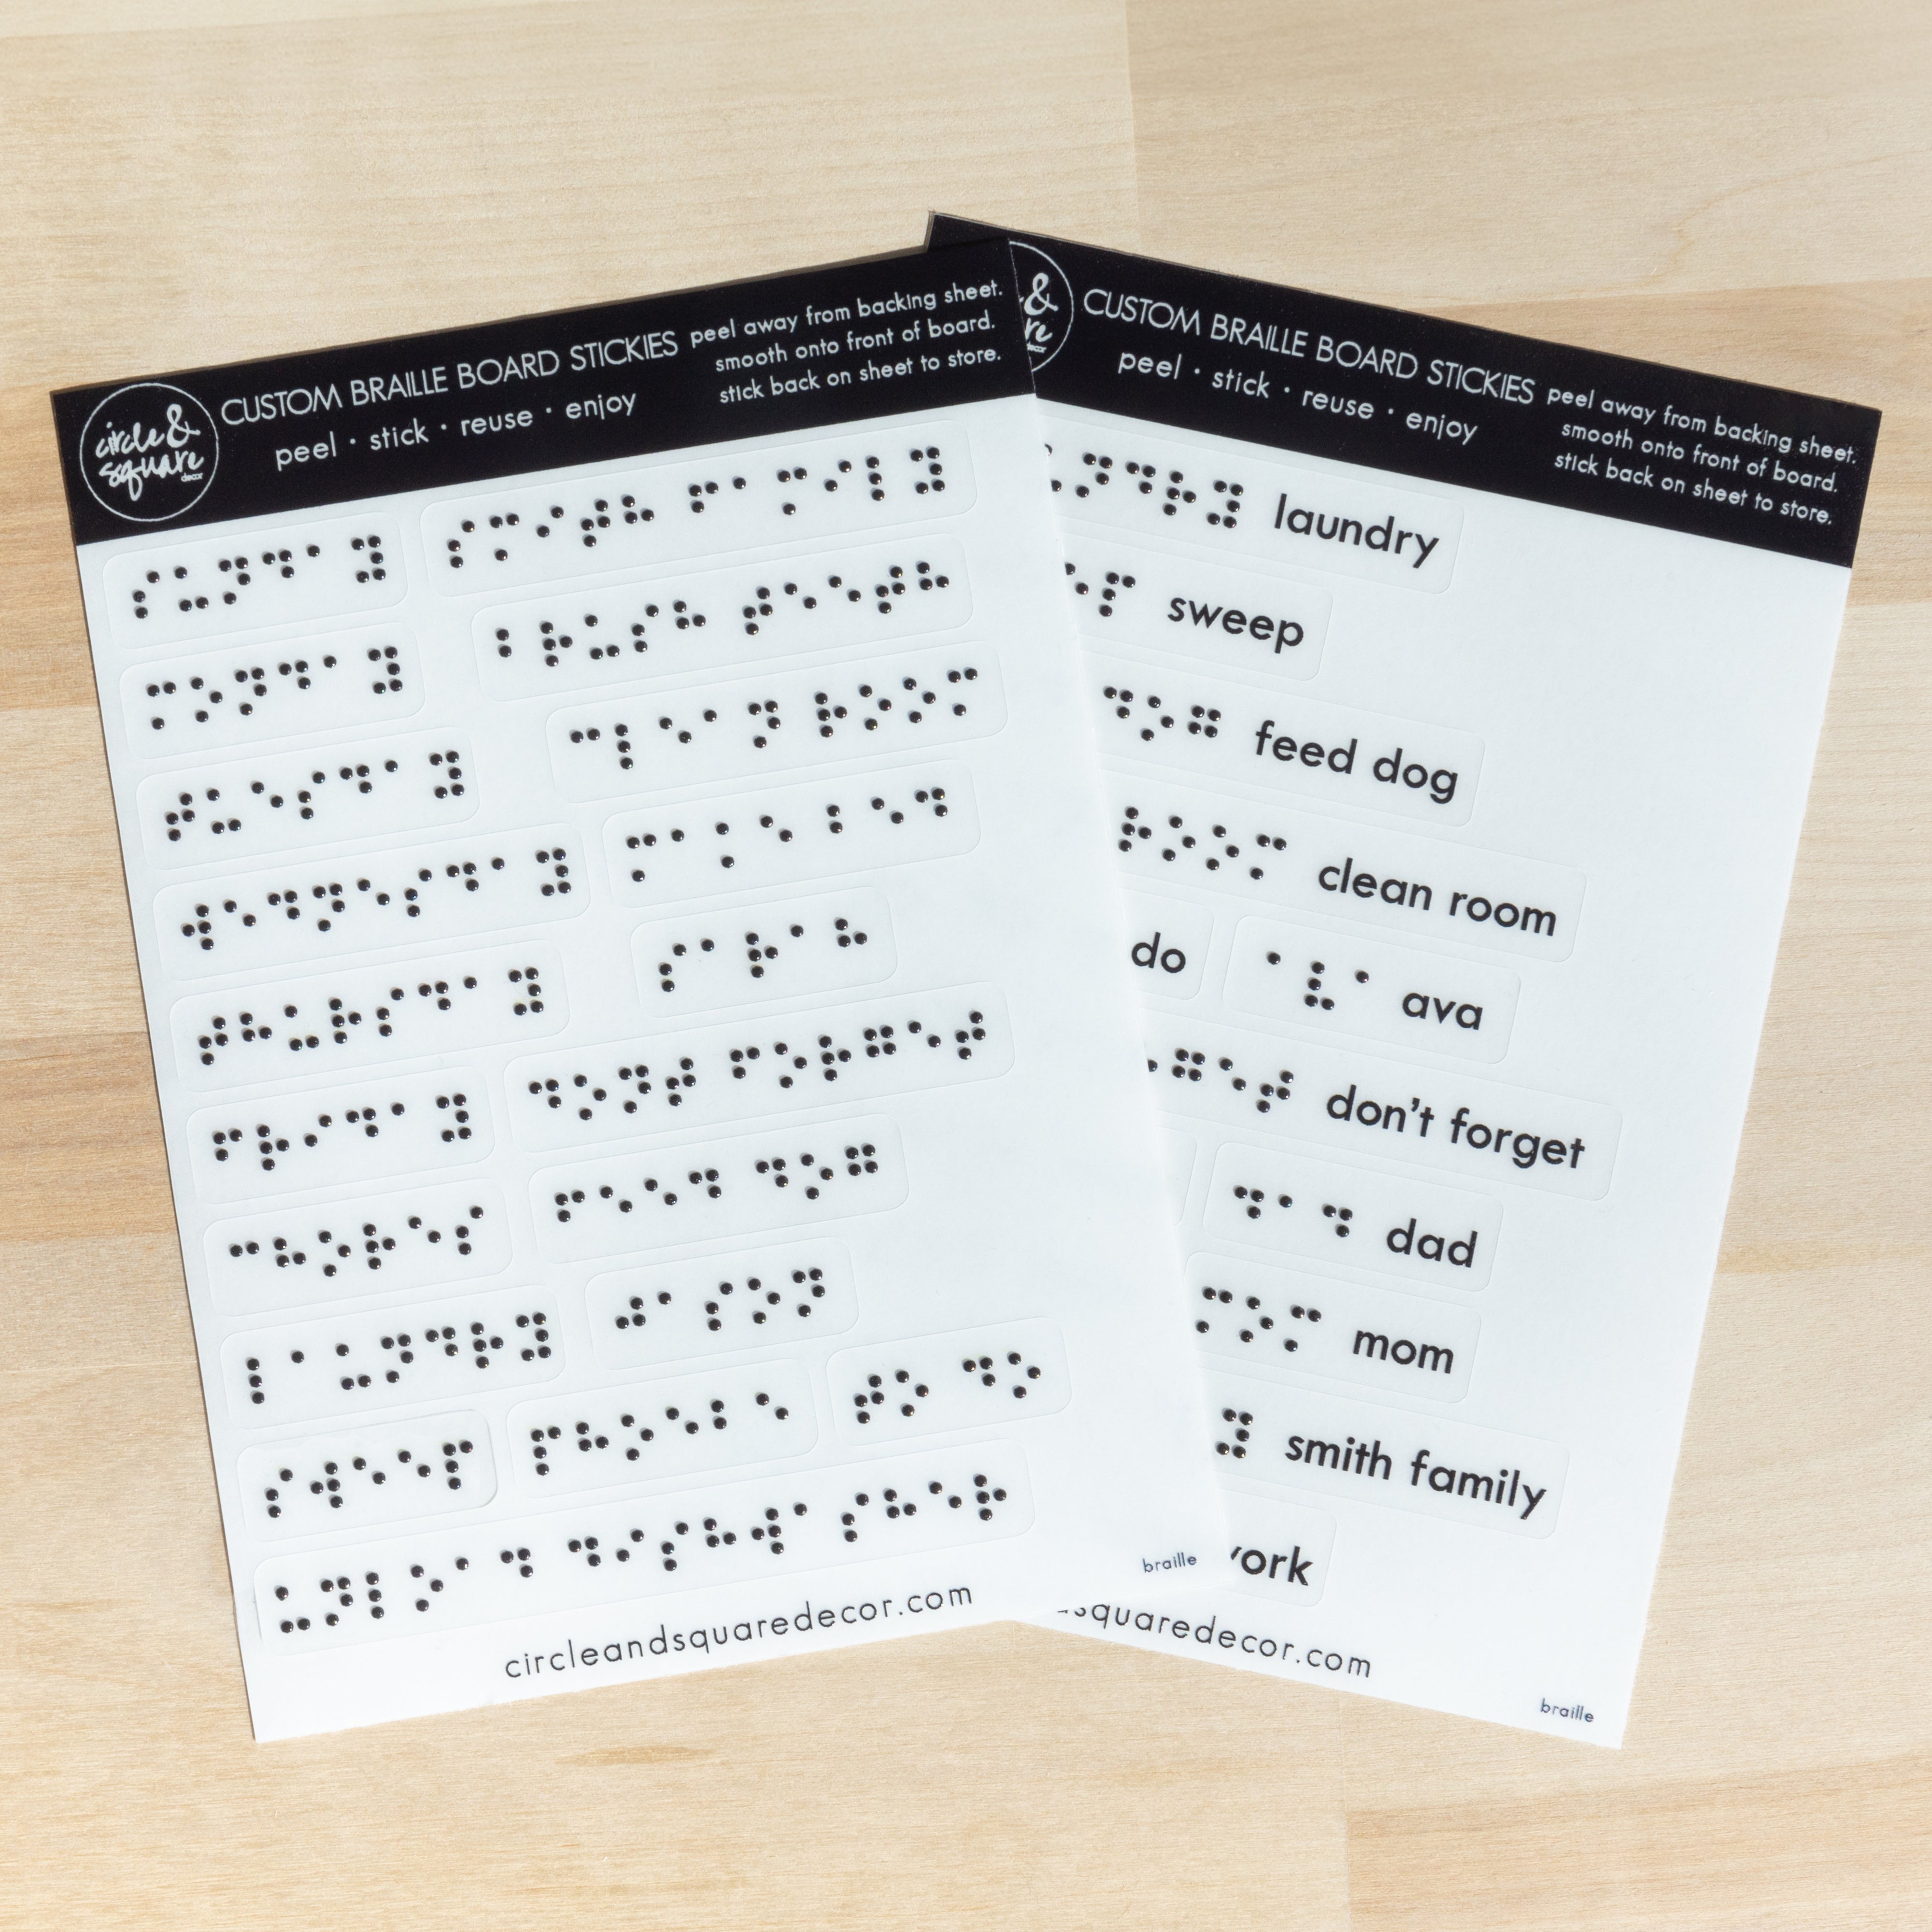 circle & square decor
CUSTOM BRAILLE BOARD STICKIES
peel · stick · reuse · enjoy
peel away from backing sheet.
smooth onto front of board.
stick back on sheet to store.
⠎⠥⠝⠙⠁⠽
⠎⠍⠊⠞⠓ ⠋⠁⠍⠊⠇⠽
⠍⠕⠝⠙⠁⠽
⠃⠗⠥⠎⠓ ⠞⠑⠑⠞⠓
⠞⠥⠑⠎⠙⠁⠽
⠉⠇⠑⠁⠝ ⠗⠕⠕⠍
⠺⠑⠙⠝⠑⠎⠙⠁⠽
⠍⠁⠅⠑ ⠃⠑⠙
⠞⠓⠥⠗⠎⠙⠁⠽
⠎⠁⠗⠁⠓
⠋⠗⠊⠙⠁⠽
⠙⠕⠝⠞ ⠋⠕⠗⠛⠑⠞
⠉⠓⠕⠗⠑⠎
⠋⠑⠑⠙ ⠙⠕⠛
⠇⠁⠥⠝⠙⠗⠽
⠚⠁⠎⠕⠝
⠎⠺⠑⠑⠏
⠏⠓⠕⠑⠃⠑
⠞⠕ ⠙⠕
⠥⠝⠇⠕⠁⠙ ⠙⠊⠎⠓⠺⠁⠎⠓⠑⠗
circleandsquaredecor.com
braille
CUSTOM BRAILLE BOARD STICKIES
peel · stick · reuse · enjoy
peel away from backing sheet.
smooth onto front of board.
stick back on sheet to store.
⠝⠙⠗⠽ laundry
⠑⠏ sweep
⠙⠕⠛ feed dog
⠗⠕⠕⠍ clean room
do
⠁⠧⠁ ava
⠛⠑⠞ don't forget
⠙⠁⠙ dad
⠍⠕⠍ mom
⠽ smith family
ork
squaredecor.com
braille